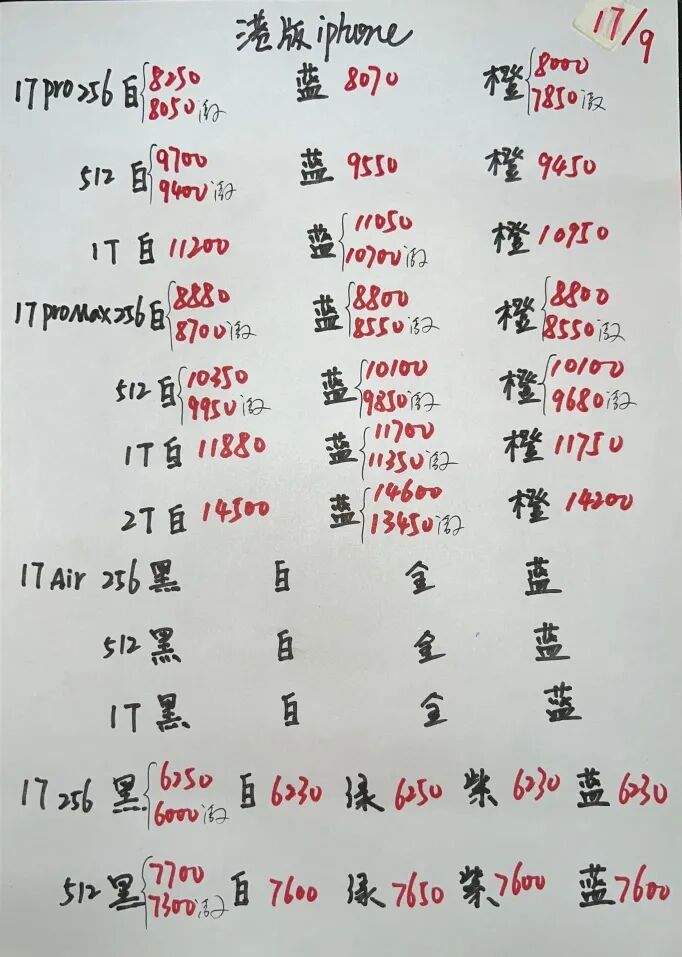 港版iphone 17/9
17pro256白 8250 8050激 蓝 8070 橙 8000 7850激
512白 9700 9400激 蓝 9550 橙 9450
1T白 11200 蓝 11050 10700激 橙 10950
17proMax256白 8880 8700激 蓝 8800 8550激 橙 8800 8550激
512白 10350 9950激 蓝 10100 9850激 橙 10100 9680激
1T白 11880 蓝 11700 11350激 橙 11750
2T白 14500 蓝 14600 13450激 橙 14200
17Air 256黑 白 金 蓝
512黑 白 金 蓝
1T黑 白 金 蓝
17 256 黑 6250 6000激 白 6230 绿 6250 紫 6230 蓝 6230
512黑 7700 7300激 白 7600 绿 7650 紫 7600 蓝 7600